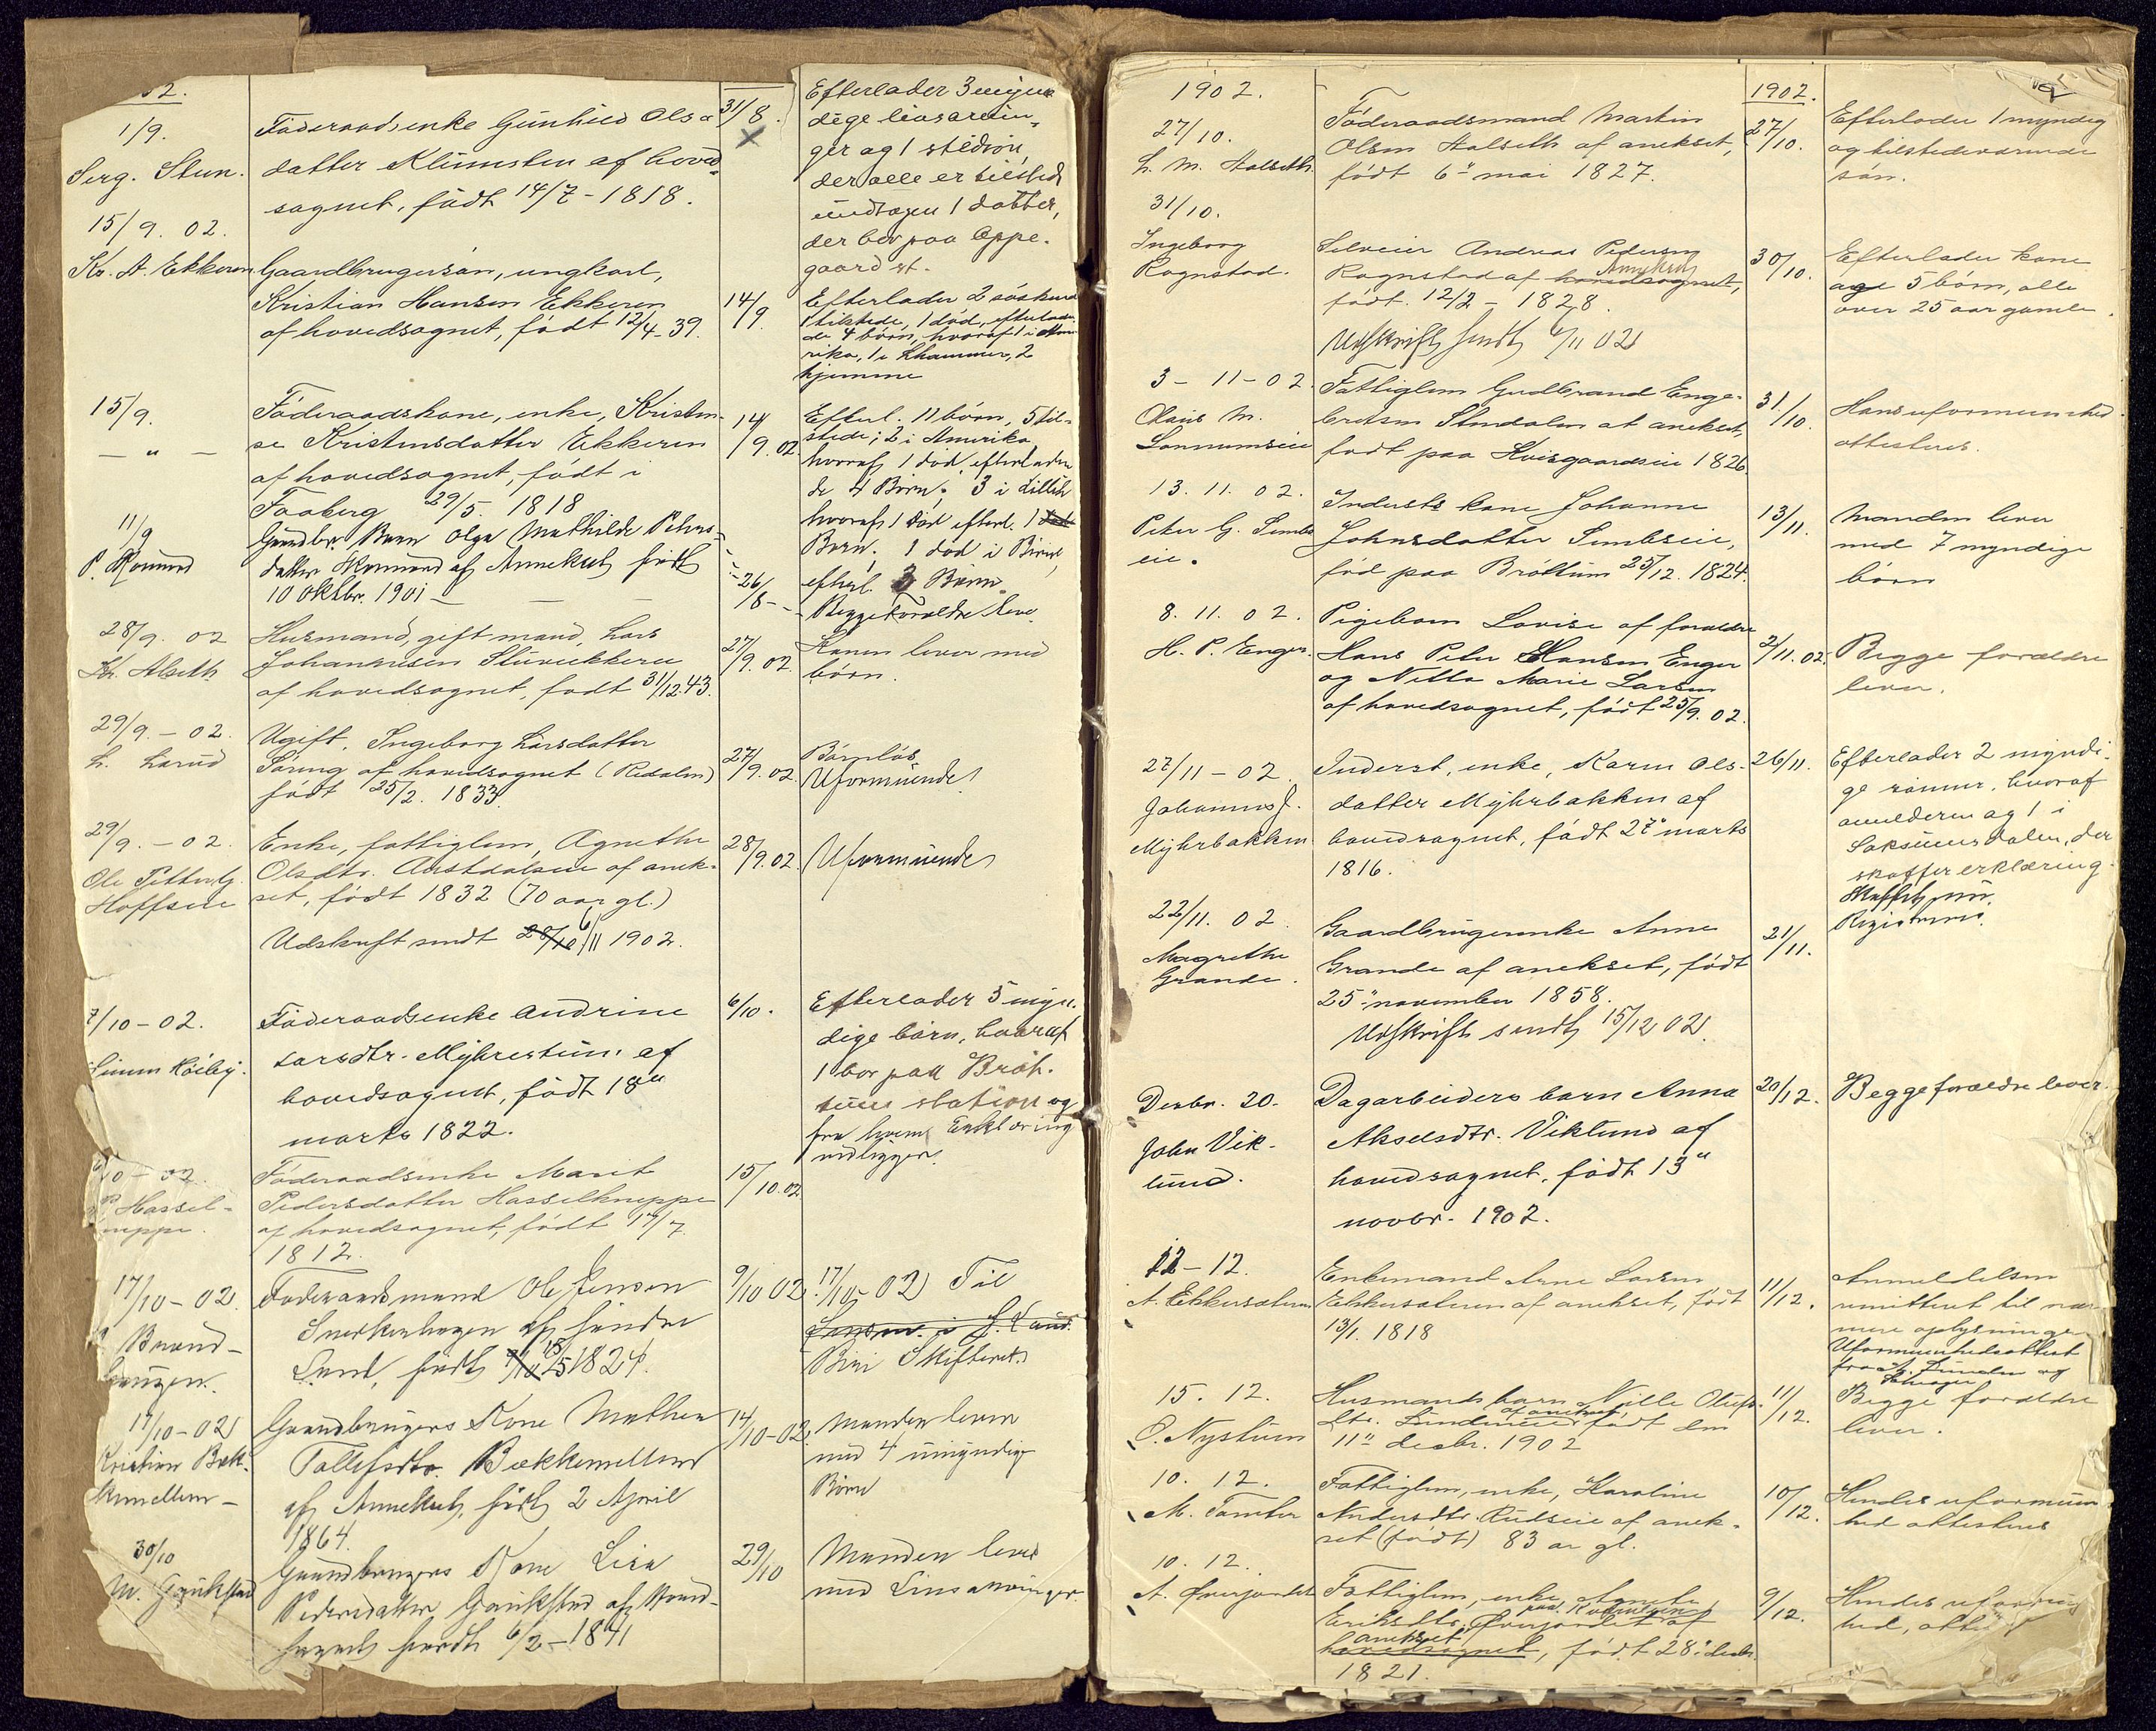 1/9.
Serg. Stun.
Föderaadsenke Gunhild Ols-
datter Klümsten af hoved-
sagnet, födt 14/7 - 1818.
31/8.
Efterlader 3 myn
dige livsarvin-
ger og 1 stedsön,
der alle er tilsted
undtagen 1 datter,
der bor paa Oppe-
gaard st.
15/9. 02.
Kr. A. Ekkeren
Gaardbrugersön, ungkarl,
Kristian Hansen Ekkeren
af hovedsagnet, födt 12/4. 39.
14/9.
Efterlader 2 söskend
1 tilstede, 1 död, efterlade
de 4 börn, hvoraf 1 i Ame
rika, 1 i Lhammer, 2
hjemme
15/9.
— " —
Föderaadskone, enke, Kristen-
se Kristensdatter Ekkeren
af hovedsagnet, födt i
Faaberg 29/5. 1818
14/9. 02.
Efterl. 11 börn, 5 til-
stede; 2 i Amerika
hvoraf 1 död, efterladen
de 4 Börn; 3 i Lilleh
hvoraf 1 död efterl. 1
Barn. 1 död i Biri
efterl. 3 Börn.
11/9
Gaardbr. Barn Olga Mathilde Peters-
datter af Annekset födt
10 Oktbr. 1901 —
26/8 -
Begge Foraeldre leve.
28/9. 02
Kr. Alseth
Husmand, gift mand, Lars
Johannesen Stuvekkeren
af hovedsagnet, födt 31/12. 43.
27/9. 02.
Konen lever med
börn.
29/9. - 02.
L. Larud
Ugift, Ingeborg Larsdatter
Söring af hovedsagnet (Redalen)
födt 25/2. 1833.
27/9. 02.
Barnlös
Uformuende
29/9. - 02.
Ole Petter G.
Hoffseie
Enke, fattiglem, Agnethe
Olsdtr. Austdalseie af anek-
set, födt 1832 (70 aar gl.)
Udskrift sendt 28/10 6/11 1902.
28/9. 02
Uformuende
7/10 - 02.
Simen Höiby.
Föderaadsenke Andrine
Larsdtr. Myhrestuen af
hovedsagnet, födt 18de
marts 1822.
6/10.
Efterlader 5 myn-
dige börn, hvoraf
1 bor paa Bröt-
tum station og
fra hvem Erklaering
vedligger.
Hassel-
Föderaadsenke Marit
Pedersdatter Hasselkneppe
af hovedsagnet, födt 17/7.
1812.
15/10. 02
17/10 - 02.
Föderaadsmand Ole Jensen
Snerkenhagen af söndre
Land, födt 15/5 1824.
9/10 02
17/10 - 02 Til
Lensm. i S. Land.
Biri Skifteret
17/10 - 02
Kristian Bek-
kemellem -
Gaardbrugers Kone Mathea
Tollefsdtr. Bekkemellem
af Annekset, födt 2 April
1864.
14/10 - 02.
Manden lever
med 4 umyndige
Börn
30/10
M. Gjeikstad
Gaardbrugers Kone Lisa
Pedersdatter Gjeikstad af Hoved-
sagnet föedt 6/2 - 1841
29/10
Manden lever
med Livsarvinger.
1902.
1902.
27/10.
L. M. Halseth
Föderaadsmand Martin
Olsen Halseth af anekset,
födt 6" mai 1827.
27/10.
Efterlader 1 myndig
og tilstedevaerende
sön.
31/10.
Ingeborg
Rognstad.
Selveier Andreas Pedersen
Rognstad af hovedsagnet, Anneksets
födt. 12/2 - 1828.
Udskrift sendt 6/11 02
30/10.
Efterlader kone
og 5 börn, alle
over 25 aar gamle.
3 - 11 - 02.
Olaus M.
Sonnumseie
Fattiglem Gudbrand Enge-
bretsen Stendalen af anekset,
födt paa Kvisgaardseie 1826
31/10.
Hans uformuenhed
attesteres.
13. 11. 02.
Peter G. Sembs
eie.
Indersts kone Johanne
Johnsdatter Sembseie,
föd paa Bröttum 25/12. 1824.
13/11.
Manden lever
med 7 myndige
börn
8. 11. 02.
H. P. Enger.
Pigebarn Lovise af foraeldre
Hans Peter Hansen Enger
og Netta Marie Larsen
af hovedsagnet, födt 25/9. 02.
2/11. 02.
Begge foraeldre
lever.
27/11 - 02.
Johannes J.
Myhrbakken
Inderst, enke, Karen Ols-
datter Myhrbakken af
hovedsagnet, födt 27" marts
1816.
26/11.
Efterlader 2 myndi-
ge sönner, hvoraf
anmelderen og 1 i
Saksumsdalen, der
skaffer erklaering.
22/11. 02.
Magrethe
Grande.
Gaardbrugerenke Anne
Grande af anekset, födt
25" november 1858.
Udskrift sendt 15/12 02
21/11.
Desbr. 20.
John Vik-
lund.
Dagarbeiders barn Anna
Akselsdtr. Viklund af
hovedsagnet, födt 13"
novbr. 1902.
20/12.
Begge foraeldre lever.
12 - 12.
A. Ekkersveen
Enkemand Arne Larsen
Ekkersveen af anekset, födt
13/1. 1818
11/12.
Anmeldelsen
remitteret til naer
mere oplysninger
Uformuenhedsattest
15. 12.
O. Nystuen
Husmands barn Nille Olufs-
dtr. Lundeneie af anekset födt den
11" desbr. 1902
11/12.
Begge foraeldre
lever.
10. 12.
M. Tomter
Fattiglem, enke, Karoline
Andersdtr. Rudseie af anek-
set (födt) 83 ar gl.
10/12.
Hendes uformuen
hed attesteres
10. 12.
A. Överjordet
Fattiglem, enke Agnete
Eriksdtr. Överjordet af
anekset
hovedsagnet, födt 28" desbr.
1821.
9/12.
Hendes uformuen
hed,